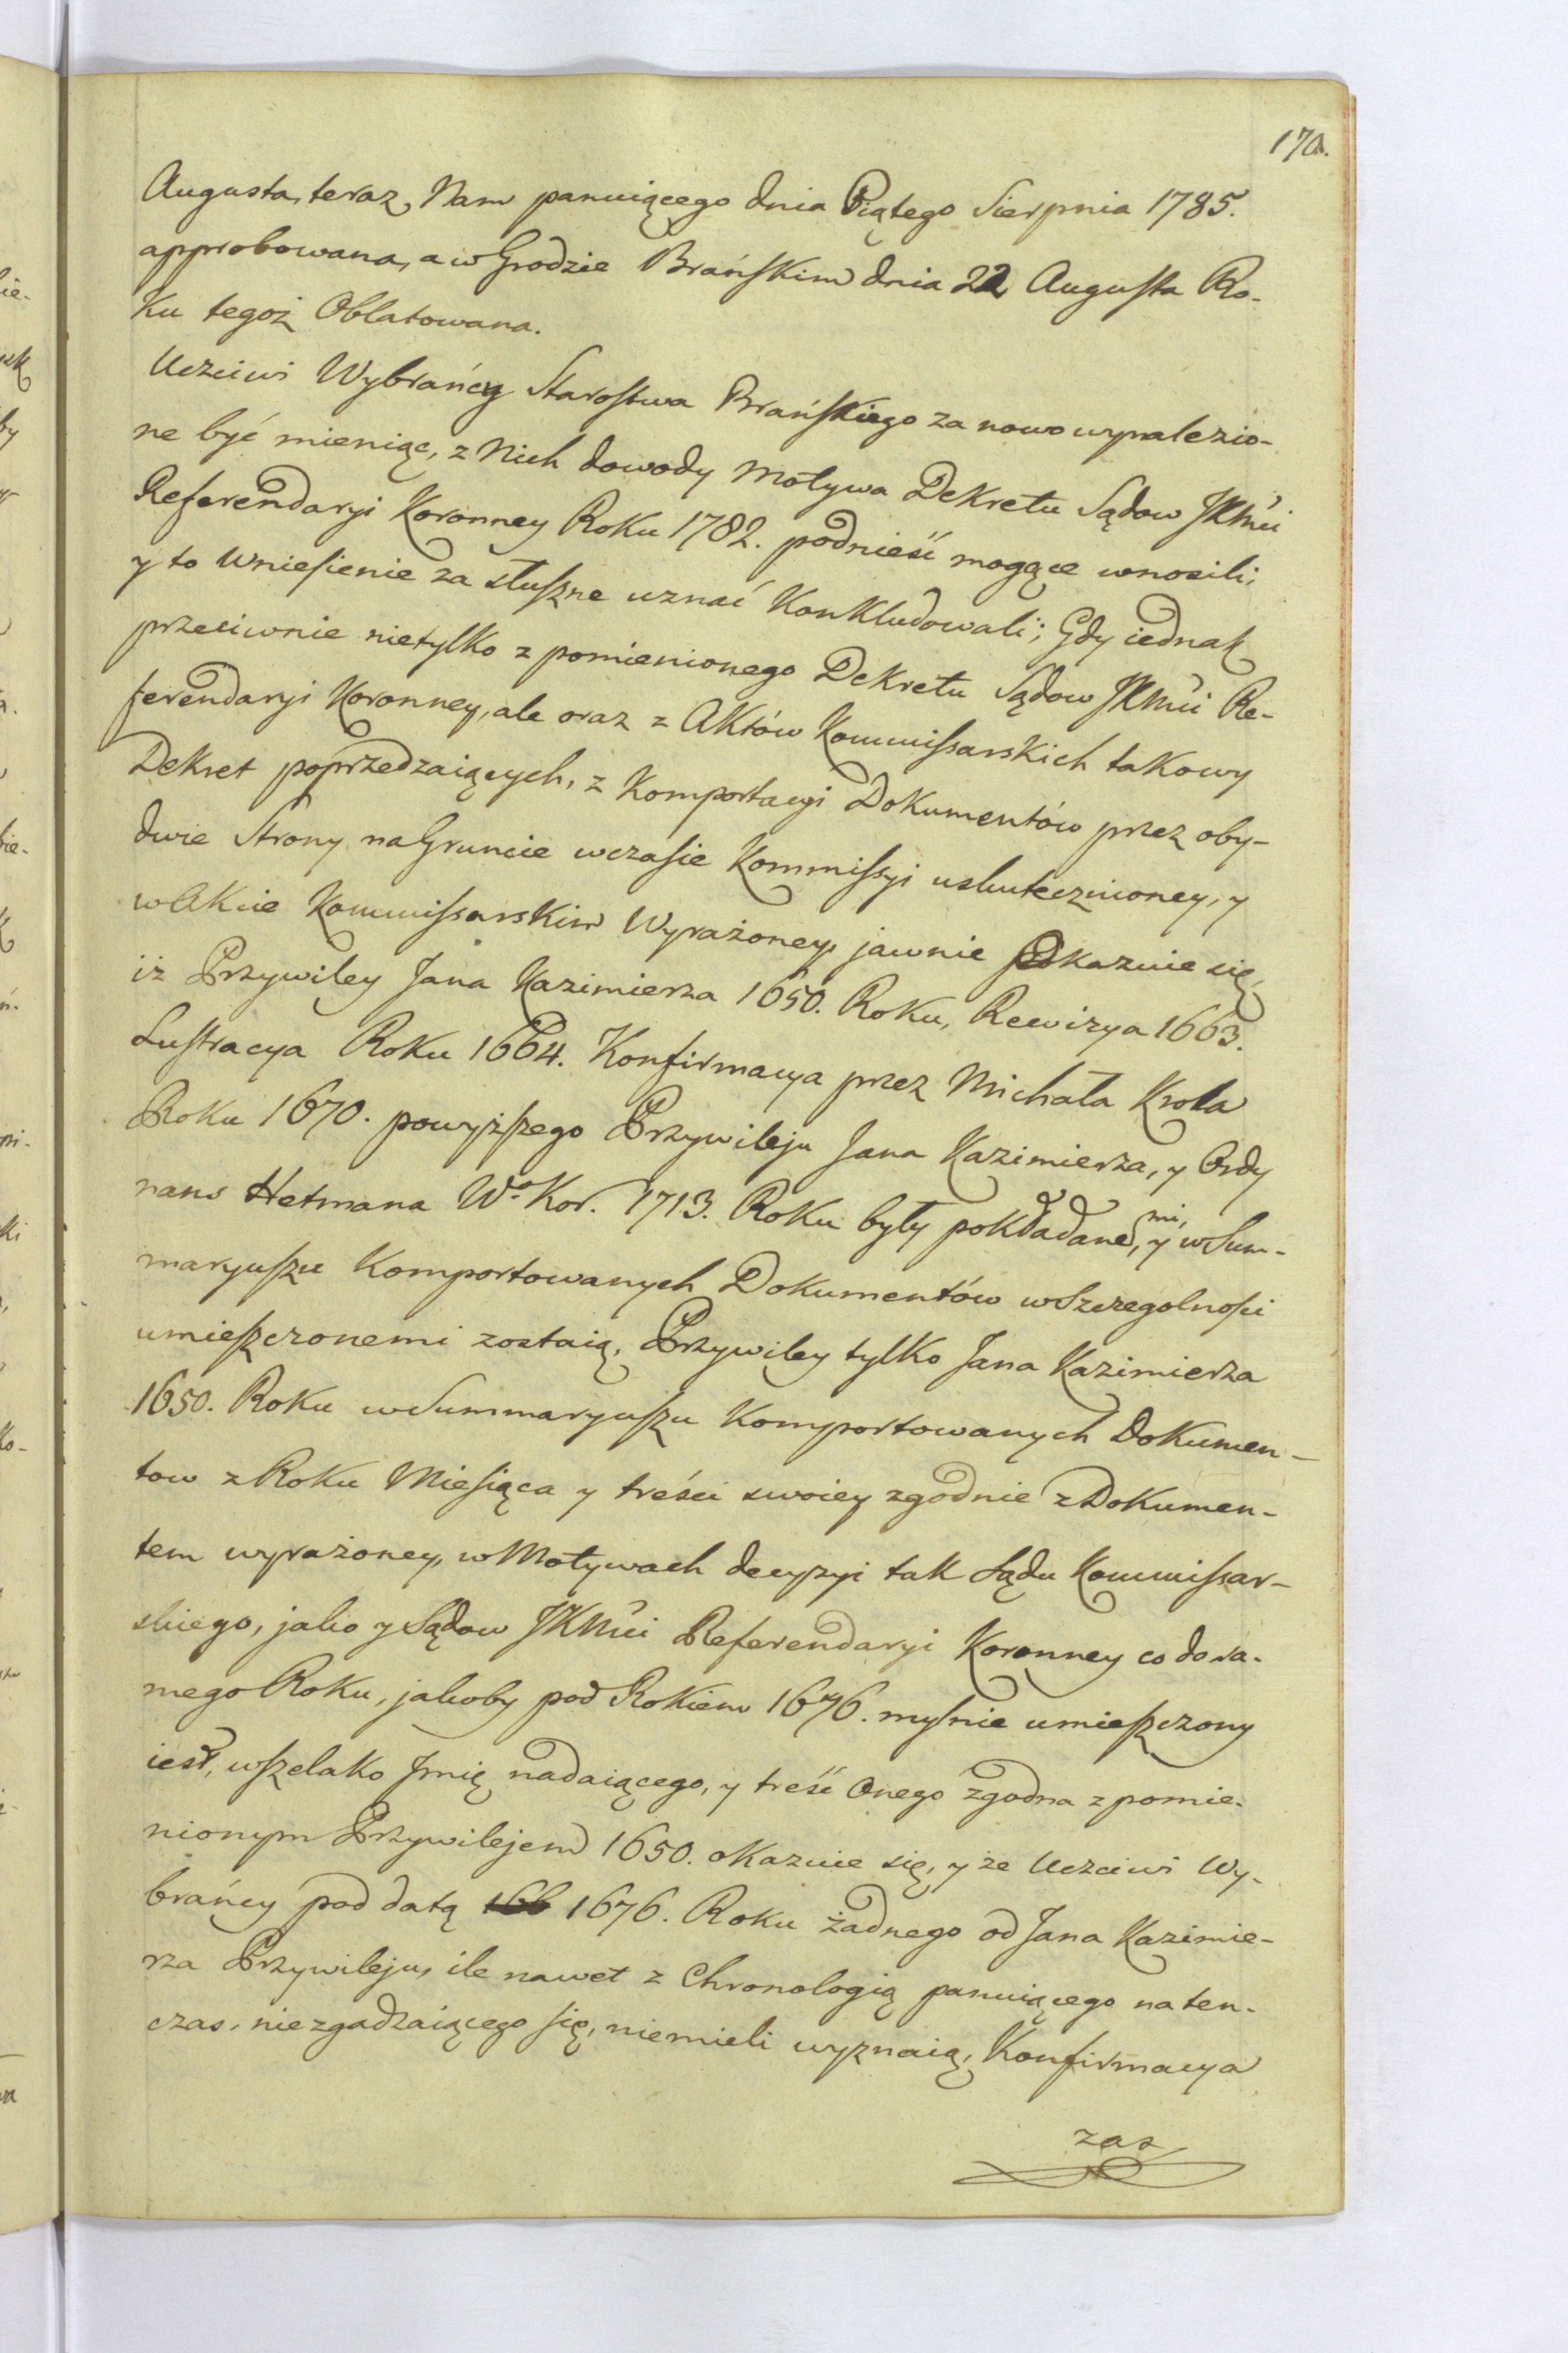 170.
Augusta, teraz Nam panuiącego dnia Piątego Sierpnia 1785.
approbowana, a w Grodzie Brańskim dnia 22 Augusta Ro-
ku tegoż Oblatowana.
Uczciwi Wybrańcy Starostwa Brańskiego za nowo wynalezio-
ne być mieniąc, z Nich dowody motywa Dekretu Sądow JKMci
Referendaryi Koronney Roku 1782. podnieść mogące wnosili,
y to Wniesienie za słuszne uznać Konkludowali; Gdy iednak
przeciwnie nietylko z pomienionego Dekretu Sądow JKMci Re-
ferendaryi Koronney, ale oraz z Aktów Kommissarskich takowy
Dekret poprzedzaiących, z Komportacyi Dokumentów przez oby-
dwie Strony na Gruncie wczasie Kommissyi uskutecznioney, y
w Akcie Kommissarskim Wyrażoney, jawnie okazuie się,
iż Przywiley Jana Kazimierza 1650. Roku, Rewizya 1663.
Lustracya Roku 1664. Konfirmacya przez Michała Krola
Roku 1670. powyższego Przywileju Jana Kazimierza, y Ordy
nans Hetmana Wo. Kor. 1713. Roku były pokładanemi, y w Sum-
maryuszu Komportowanych Dokumentów w Szczegolności
umieszczonemi zostaią, Przywiley tylko Jana Kazimierza
1650. Roku w Summaryuszu Komportowanych Dokumen-
tow z Roku Miesiąca y treści swoiey zgodnie z Dokumen-
tem wyrażoney, w Motywach decyzyi tak Sądu Kommissar-
skiego, jako y Sądow JKMci Referendaryi Koronney co do sa-
mego Roku, jakoby pod Rokiem 1676. mylnie umieszczony
iest, wszelako Jmię nadaiącego, y treść Onego zgodna z pomie-
nionym Przywilejem 1650. okazuie się, y że Uczciwi Wy-
brańcy pod datą 166 1676. Roku żadnego od Jana Kazimie-
rza Przywileju, ile nawet z Chronologią panuiącego na ten-
czas, niezgadzaiącego się, niemieli wyznaią, Konfirmacya
zas